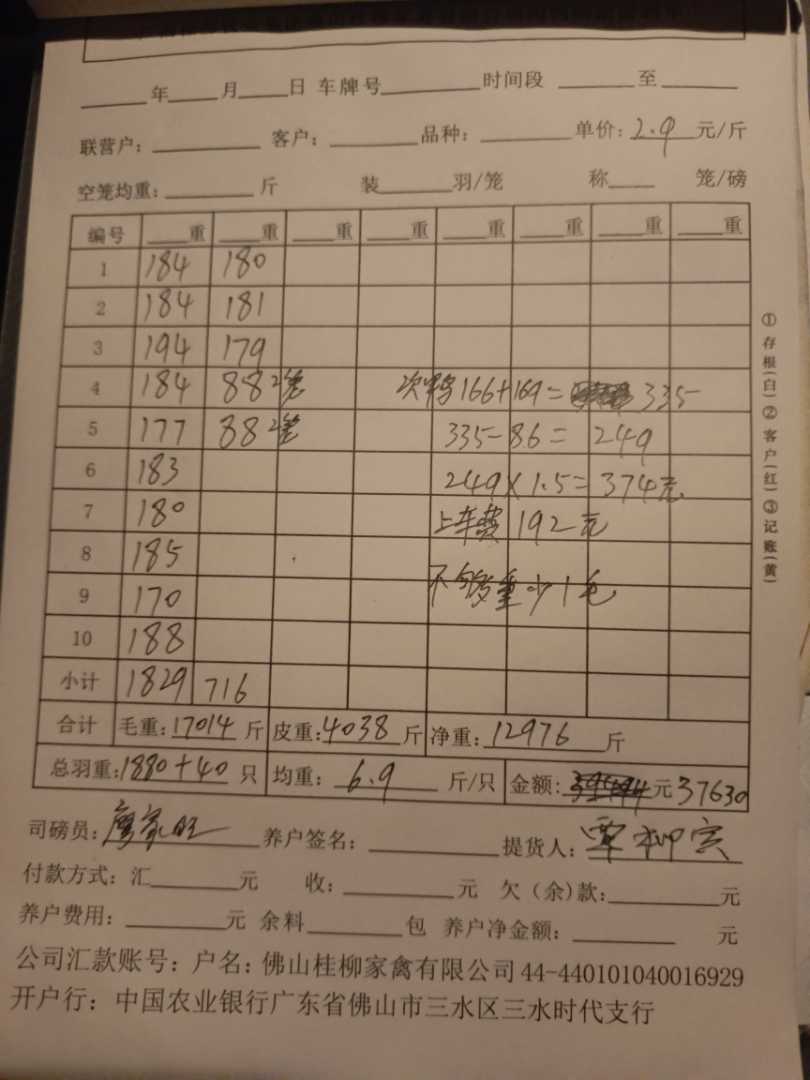 ____年____月____日 车牌号________时间段 ______至______
联营户：________ 客户：________品种：________单价：2.9元/斤
空笼均重：________斤 装______羽/笼 称____笼/磅
编号 ____重 ____重 ____重 ____重 ____重 ____重 ____重 ____重
1 184 180
2 184 181
3 194 179
4 184 88 2笼 次鸭166+169= 335
5 177 88 2笼 335-86= 249
6 183 249×1.5=374元
7 180 上车费 192元
8 185
9 170 不够重少1毛
10 188
小计 1829 716
合计 毛重：17014斤 皮重：4038斤 净重：12976斤
总羽重：1880+40只 均重：6.9斤/只 金额：元37630
司磅员：廖家旺 养户签名：________ 提货人：覃柳宾
付款方式：汇______元 收：________元 欠（余）款：________元
养户费用：________元 余料________包 养户净金额：________元
公司汇款账号：户名：佛山桂柳家禽有限公司44-440101040016929
开户行：中国农业银行广东省佛山市三水区三水时代支行
①存根(白)②客户(红)③记账(黄)